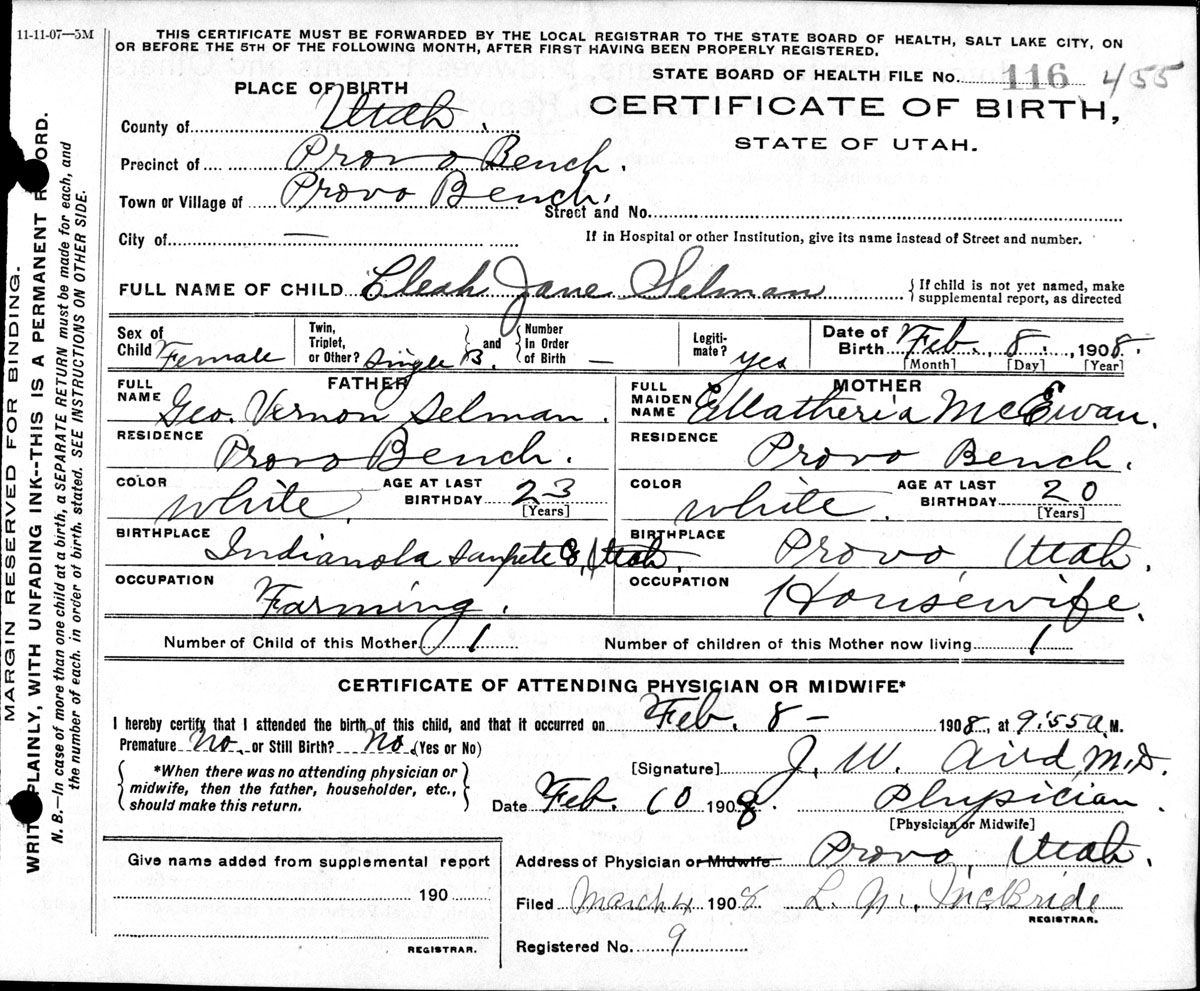 11-11-07—5M
THIS CERTIFICATE MUST BE FORWARDED BY THE LOCAL REGISTRAR TO THE STATE BOARD OF HEALTH, SALT LAKE CITY, ON
OR BEFORE THE 5TH OF THE FOLLOWING MONTH, AFTER FIRST HAVING BEEN PROPERLY REGISTERED.
STATE BOARD OF HEALTH FILE No. 116 455
PLACE OF BIRTH
CERTIFICATE OF BIRTH,
STATE OF UTAH.
County of Utah.
Precinct of Provo Bench.
Town or Village of Provo Bench. Street and No.
City of — If in Hospital or other Institution, give its name instead of Street and number.
FULL NAME OF CHILD Eleah Jane Selman { If child is not yet named, make supplemental report, as directed
Sex of Child Female Twin, Triplet, or Other? Single B. } and { Number In Order of Birth — Legiti-mate? yes Date of Birth Feb., 8., 1908.
[Month] [Day] [Year]
FATHER MOTHER
FULL NAME Geo. Vernon Selman. FULL MAIDEN NAME Ellatheria McEwan.
RESIDENCE Provo Bench. RESIDENCE Provo Bench.
COLOR white. AGE AT LAST BIRTHDAY 23 [Years] COLOR white. AGE AT LAST BIRTHDAY 20 [Years]
BIRTHPLACE Indianola Sanpete Co, Utah. BIRTHPLACE Provo, Utah.
OCCUPATION Farming. OCCUPATION Housewife.
Number of Child of this Mother 1 Number of children of this Mother now living 1
CERTIFICATE OF ATTENDING PHYSICIAN OR MIDWIFE*
I hereby certify that I attended the birth of this child, and that it occurred on Feb. 8 – 1908, at 9:55 a. M.
Premature No. or Still Birth? No. (Yes or No)
*When there was no attending physician or midwife, then the father, householder, etc., should make this return.
[Signature] J. W. Aird, M.D.
Date Feb. 10 1908. Physician.
[Physician or Midwife]
Give name added from supplemental report
190
REGISTRAR.
Address of Physician or Midwife Provo, Utah.
Filed March 4 1908 L. M. McBride
REGISTRAR.
Registered No. 9
MARGIN RESERVED FOR BINDING.
WRITE PLAINLY, WITH UNFADING INK--THIS IS A PERMANENT RECORD.
N. B.—In case of more than one child at a birth, a SEPARATE RETURN must be made for each, and
the number of each. in order of birth. stated. SEE INSTRUCTIONS ON OTHER SIDE.